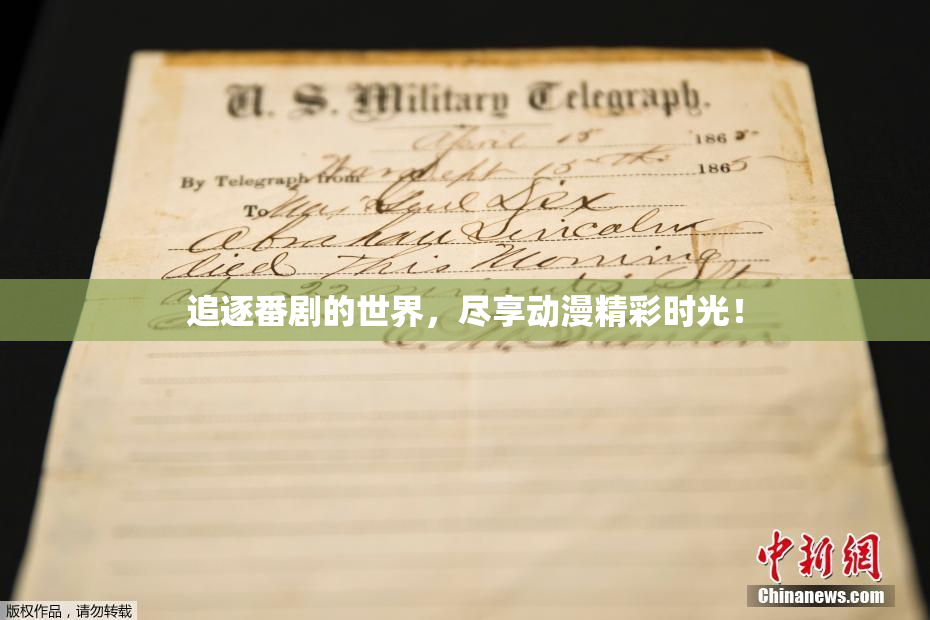 U. S. Military Telegraph.
April 15 1865
By Telegraph from War Dept 15th 1865
To Maj Genl Dix
Abraham Lincoln
died This Morning
at 22 minutes after
追逐番剧的世界，尽享动漫精彩时光！
E. M. Stanton
中新网
Chinanews.com
版权作品，请勿转载